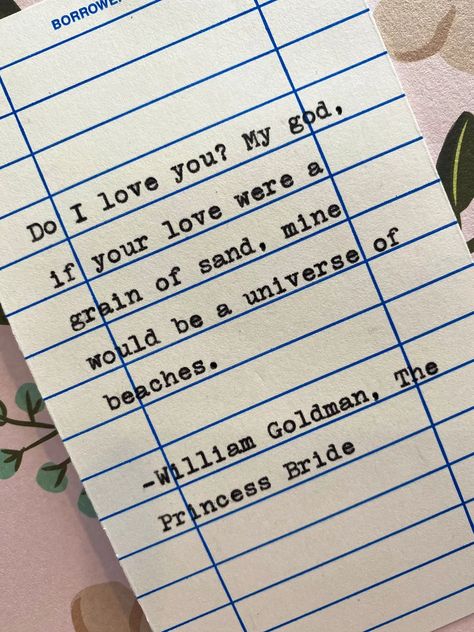 BORROWER
Do I love you? My god,
if your love were a
grain of sand, mine
would be a universe of
beaches.
-William Goldman, The
Princess Bride